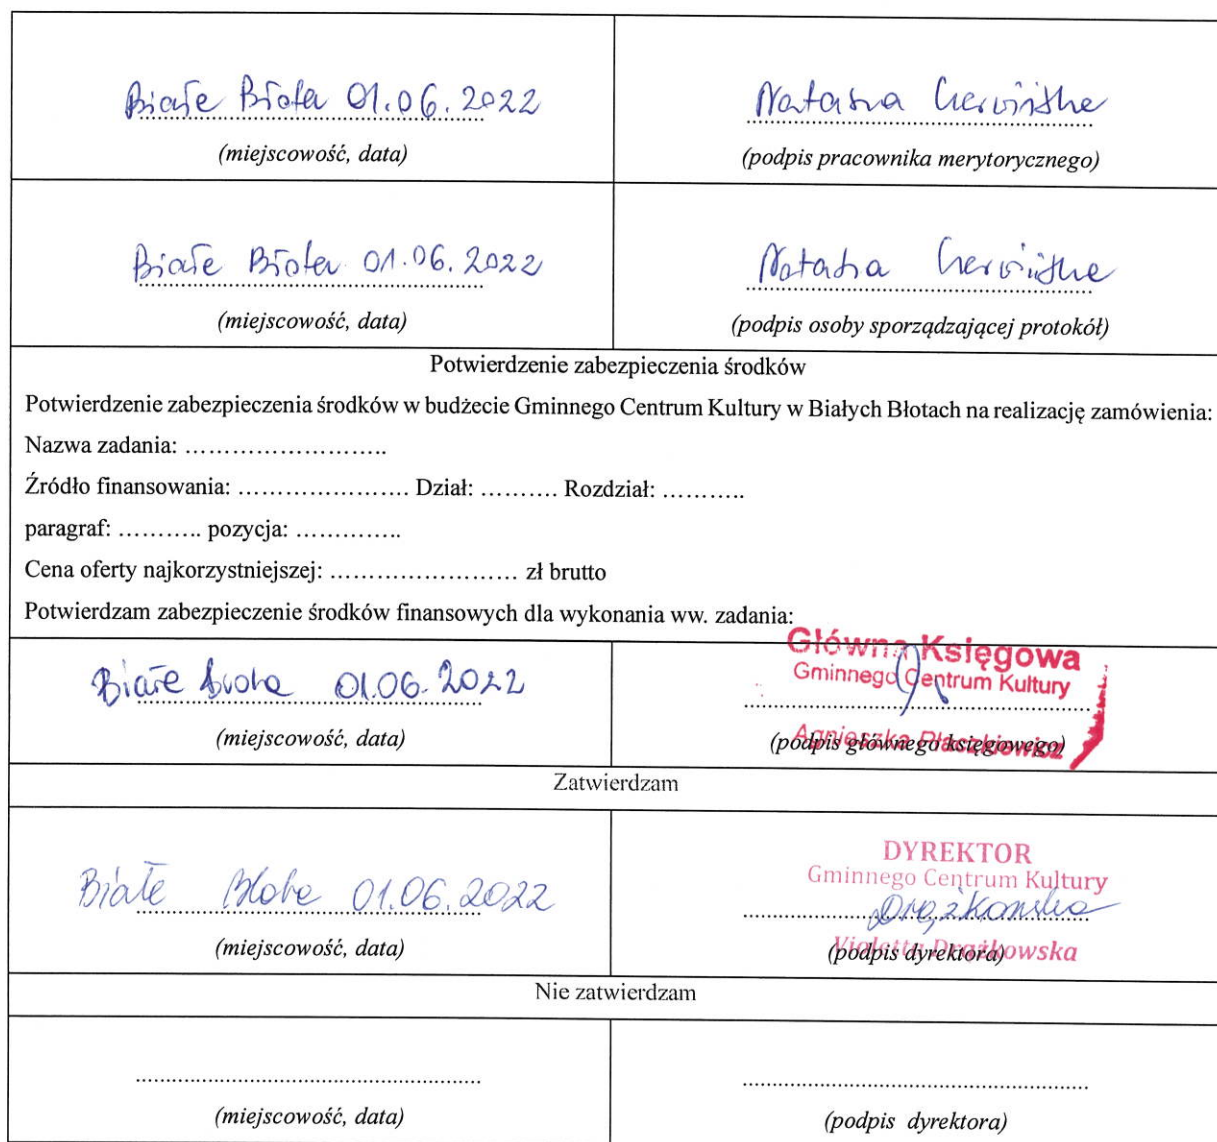 Białe Błota 01.06.2022
Natasza Czerwińska
(miejscowość, data)
(podpis pracownika merytorycznego)
Białe Błota 01.06.2022
Natasza Czerwińska
(miejscowość, data)
(podpis osoby sporządzającej protokół)
Potwierdzenie zabezpieczenia środków
Potwierdzenie zabezpieczenia środków w budżecie Gminnego Centrum Kultury w Białych Błotach na realizację zamówienia:
Nazwa zadania: ..........................
Źródło finansowania: ...................... Dział: .......... Rozdział: ...........
paragraf: ........... pozycja: ..............
Cena oferty najkorzystniejszej: ........................ zł brutto
Potwierdzam zabezpieczenie środków finansowych dla wykonania ww. zadania:
Białe Błota 01.06.2022
Główna Księgowa
Gminnego Centrum Kultury
Agnieszka Płaczkiewicz
(miejscowość, data)
(podpis głównego księgowego)
Zatwierdzam
Białe Błota 01.06.2022
DYREKTOR
Gminnego Centrum Kultury
Drążkowska
Violetta Drążkowska
(miejscowość, data)
(podpis dyrektora)
Nie zatwierdzam
(miejscowość, data)
(podpis dyrektora)